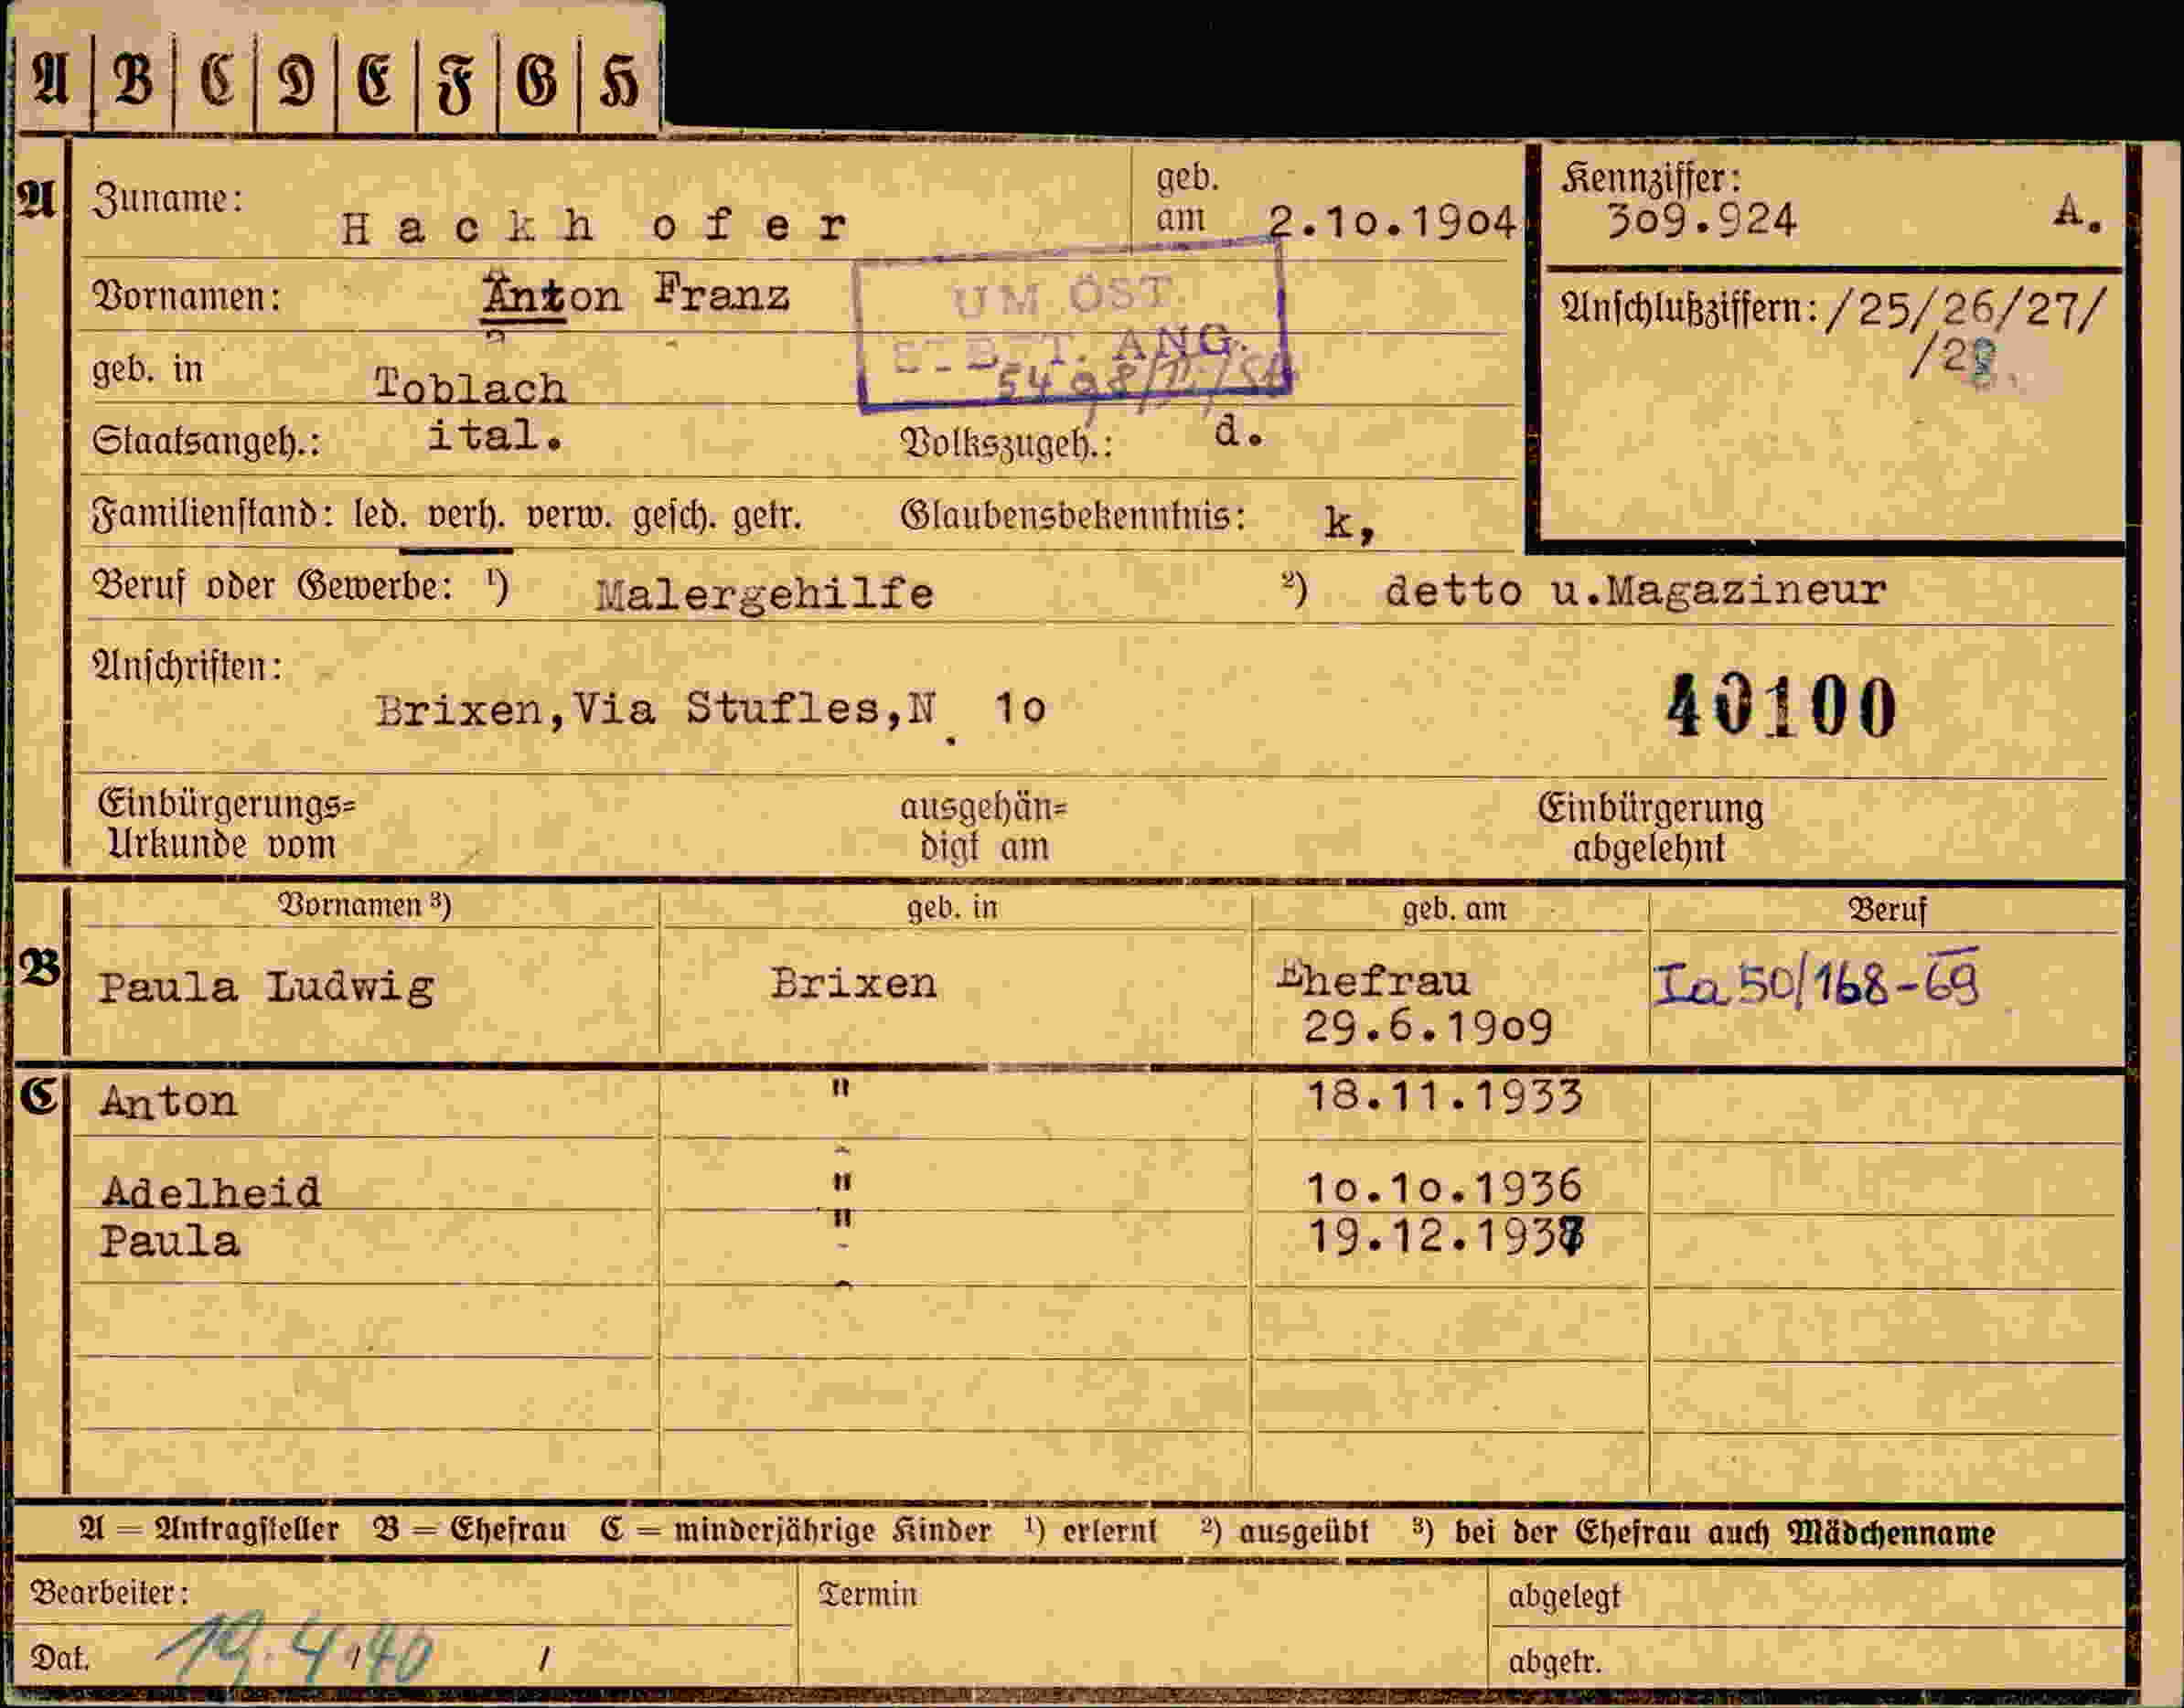 A B C D E F G H
A Zuname: Hackhofer geb. am 2.10.1904 Kennziffer: 309.924 A.
Vornamen: Anton Franz Anschlußziffern: /25/26/27/
/28
UM ÖST.
ANG.
geb. in Toblach
Staatsangeh.: ital. Volkszugeh.: d.
Familienstand: led. verh. verw. gesch. getr. Glaubensbekenntnis: k,
Beruf oder Gewerbe: ¹) Malergehilfe ²) detto u.Magazineur
Anschriften:
Brixen,Via Stufles,N. 10
40100
Einbürgerungs= Urkunde vom ausgehän= digt am Einbürgerung abgelehnt
Vornamen ³) geb. in geb. am Beruf
B Paula Ludwig Brixen Ehefrau Ia 50/168-69
29.6.1909
C Anton " 18.11.1933
Adelheid " 10.10.1936
Paula " 19.12.193
A = Antragsteller B = Ehefrau C = minderjährige Kinder ¹) erlernt ²) ausgeübt ³) bei der Ehefrau auch Mädchenname
Bearbeiter: Termin abgelegt
Dat. 19.4.40 / abgetr.